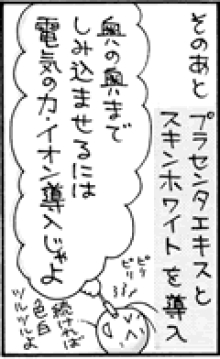 そのあと
プラセンタエキスと
スキンホワイトを導入
奥の奥まで
しみ込ませるには
電気の力・イオン導入じゃよ
ピリ
ピリ
続ければ
色白
ツルツルよ